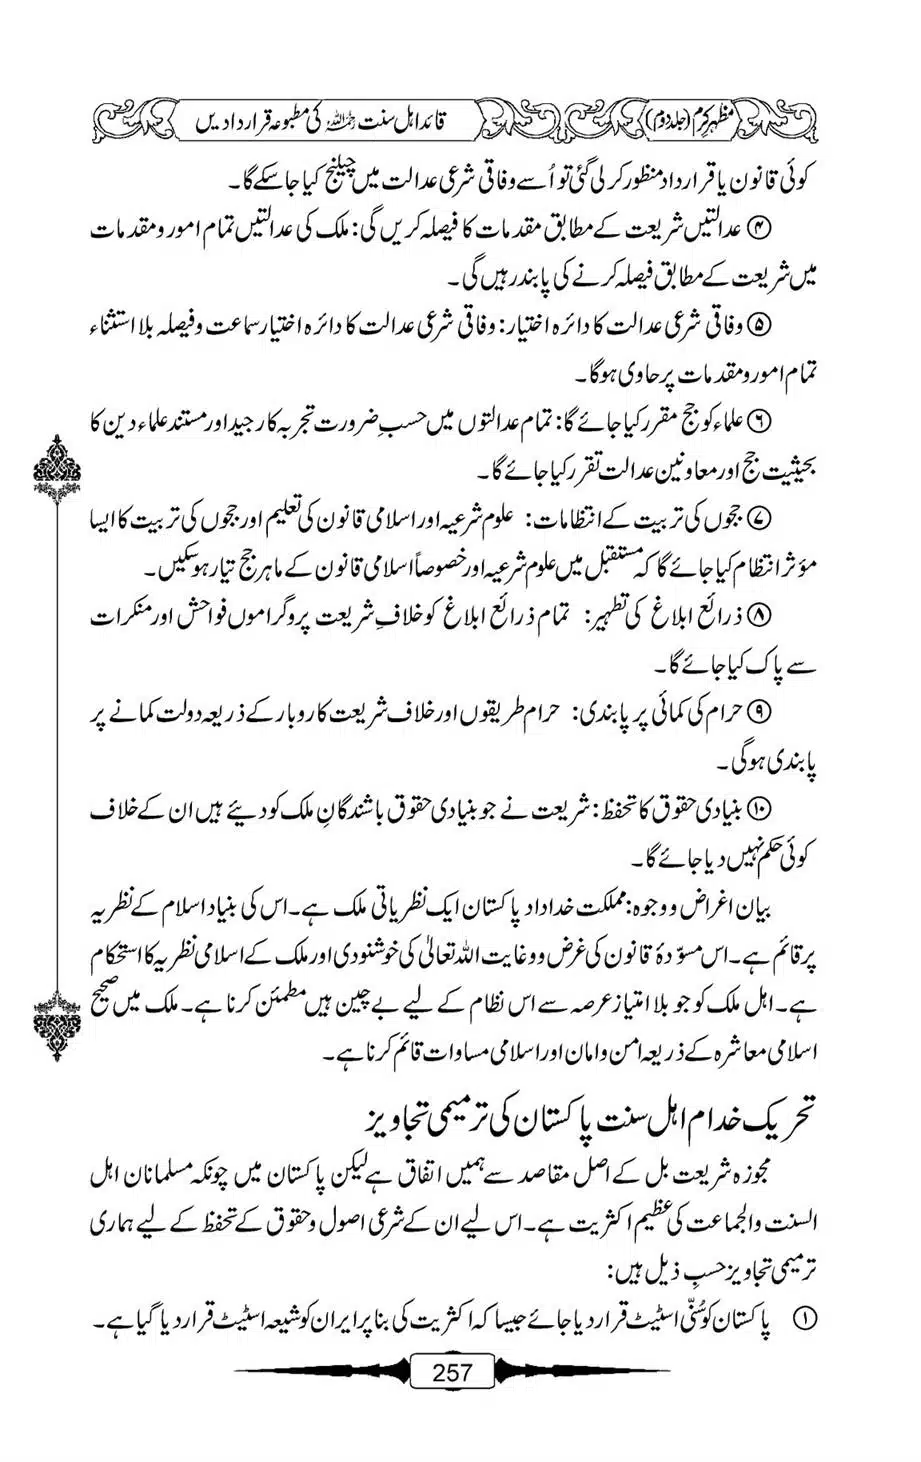 مظہرِ کرم (جلد دوم)
قائد اہل سنت رحمہ اللہ کی مطبوعہ قراردادیں
کوئی قانون یا قرارداد منظور کر لی گئی تو اُسے وفاقی شرعی عدالت میں چیلنج کیا جا سکے گا۔
④ عدالتیں شریعت کے مطابق مقدمات کا فیصلہ کریں گی: ملک کی عدالتیں تمام امور و مقدمات
میں شریعت کے مطابق فیصلہ کرنے کی پابند رہیں گی۔
⑤ وفاقی شرعی عدالت کا دائرہ اختیار: وفاقی شرعی عدالت کا دائرہ اختیار سماعت و فیصلہ بلا استثناء
تمام امور و مقدمات پر حاوی ہوگا۔
⑥ علماء کو جج مقرر کیا جائے گا: تمام عدالتوں میں حسبِ ضرورت تجربہ کار جید اور مستند علماء دین کا
بحیثیت جج اور معاونین عدالت تقرر کیا جائے گا۔
⑦ ججوں کی تربیت کے انتظامات: علوم شرعیہ اور اسلامی قانون کی تعلیم اور ججوں کی تربیت کا ایسا
مؤثر انتظام کیا جائے گا کہ مستقبل میں علوم شرعیہ اور خصوصاً اسلامی قانون کے ماہر جج تیار ہو سکیں۔
⑧ ذرائع ابلاغ کی تطہیر: تمام ذرائع ابلاغ کو خلافِ شریعت پروگراموں فواحش اور منکرات
سے پاک کیا جائے گا۔
⑨ حرام کی کمائی پر پابندی: حرام طریقوں اور خلاف شریعت کاروبار کے ذریعہ دولت کمانے پر
پابندی ہوگی۔
⑩ بنیادی حقوق کا تحفظ: شریعت نے جو بنیادی حقوق باشندگانِ ملک کو دیئے ہیں ان کے خلاف
کوئی حکم نہیں دیا جائے گا۔
بیان اغراض و وجوہ: مملکت خداداد پاکستان ایک نظریاتی ملک ہے۔ اس کی بنیاد اسلام کے نظریہ
پر قائم ہے۔ اس مسوّدۂ قانون کی غرض و وغایت اللہ تعالیٰ کی خوشنودی اور ملک کے اسلامی نظریہ کا استحکام
ہے۔ اہل ملک کو جو بلا امتیاز عرصہ سے اس نظام کے لیے بے چین ہیں مطمئن کرنا ہے۔ ملک میں صحیح
اسلامی معاشرہ کے ذریعہ امن و امان اور اسلامی مساوات قائم کرنا ہے۔
تحریک خدام اہل سنت پاکستان کی ترمیمی تجاویز
مجوزہ شریعت بل کے اصل مقاصد سے ہمیں اتفاق ہے لیکن پاکستان میں چونکہ مسلمانان اہل
السنت والجماعت کی عظیم اکثریت ہے۔ اس لیے ان کے شرعی اصول و حقوق کے تحفظ کے لیے ہماری
ترمیمی تجاویز حسبِ ذیل ہیں:
① پاکستان کو سُنّی اسٹیٹ قرار دیا جائے جیسا کہ اکثریت کی بنا پر ایران کو شیعہ اسٹیٹ قرار دیا گیا ہے۔
257